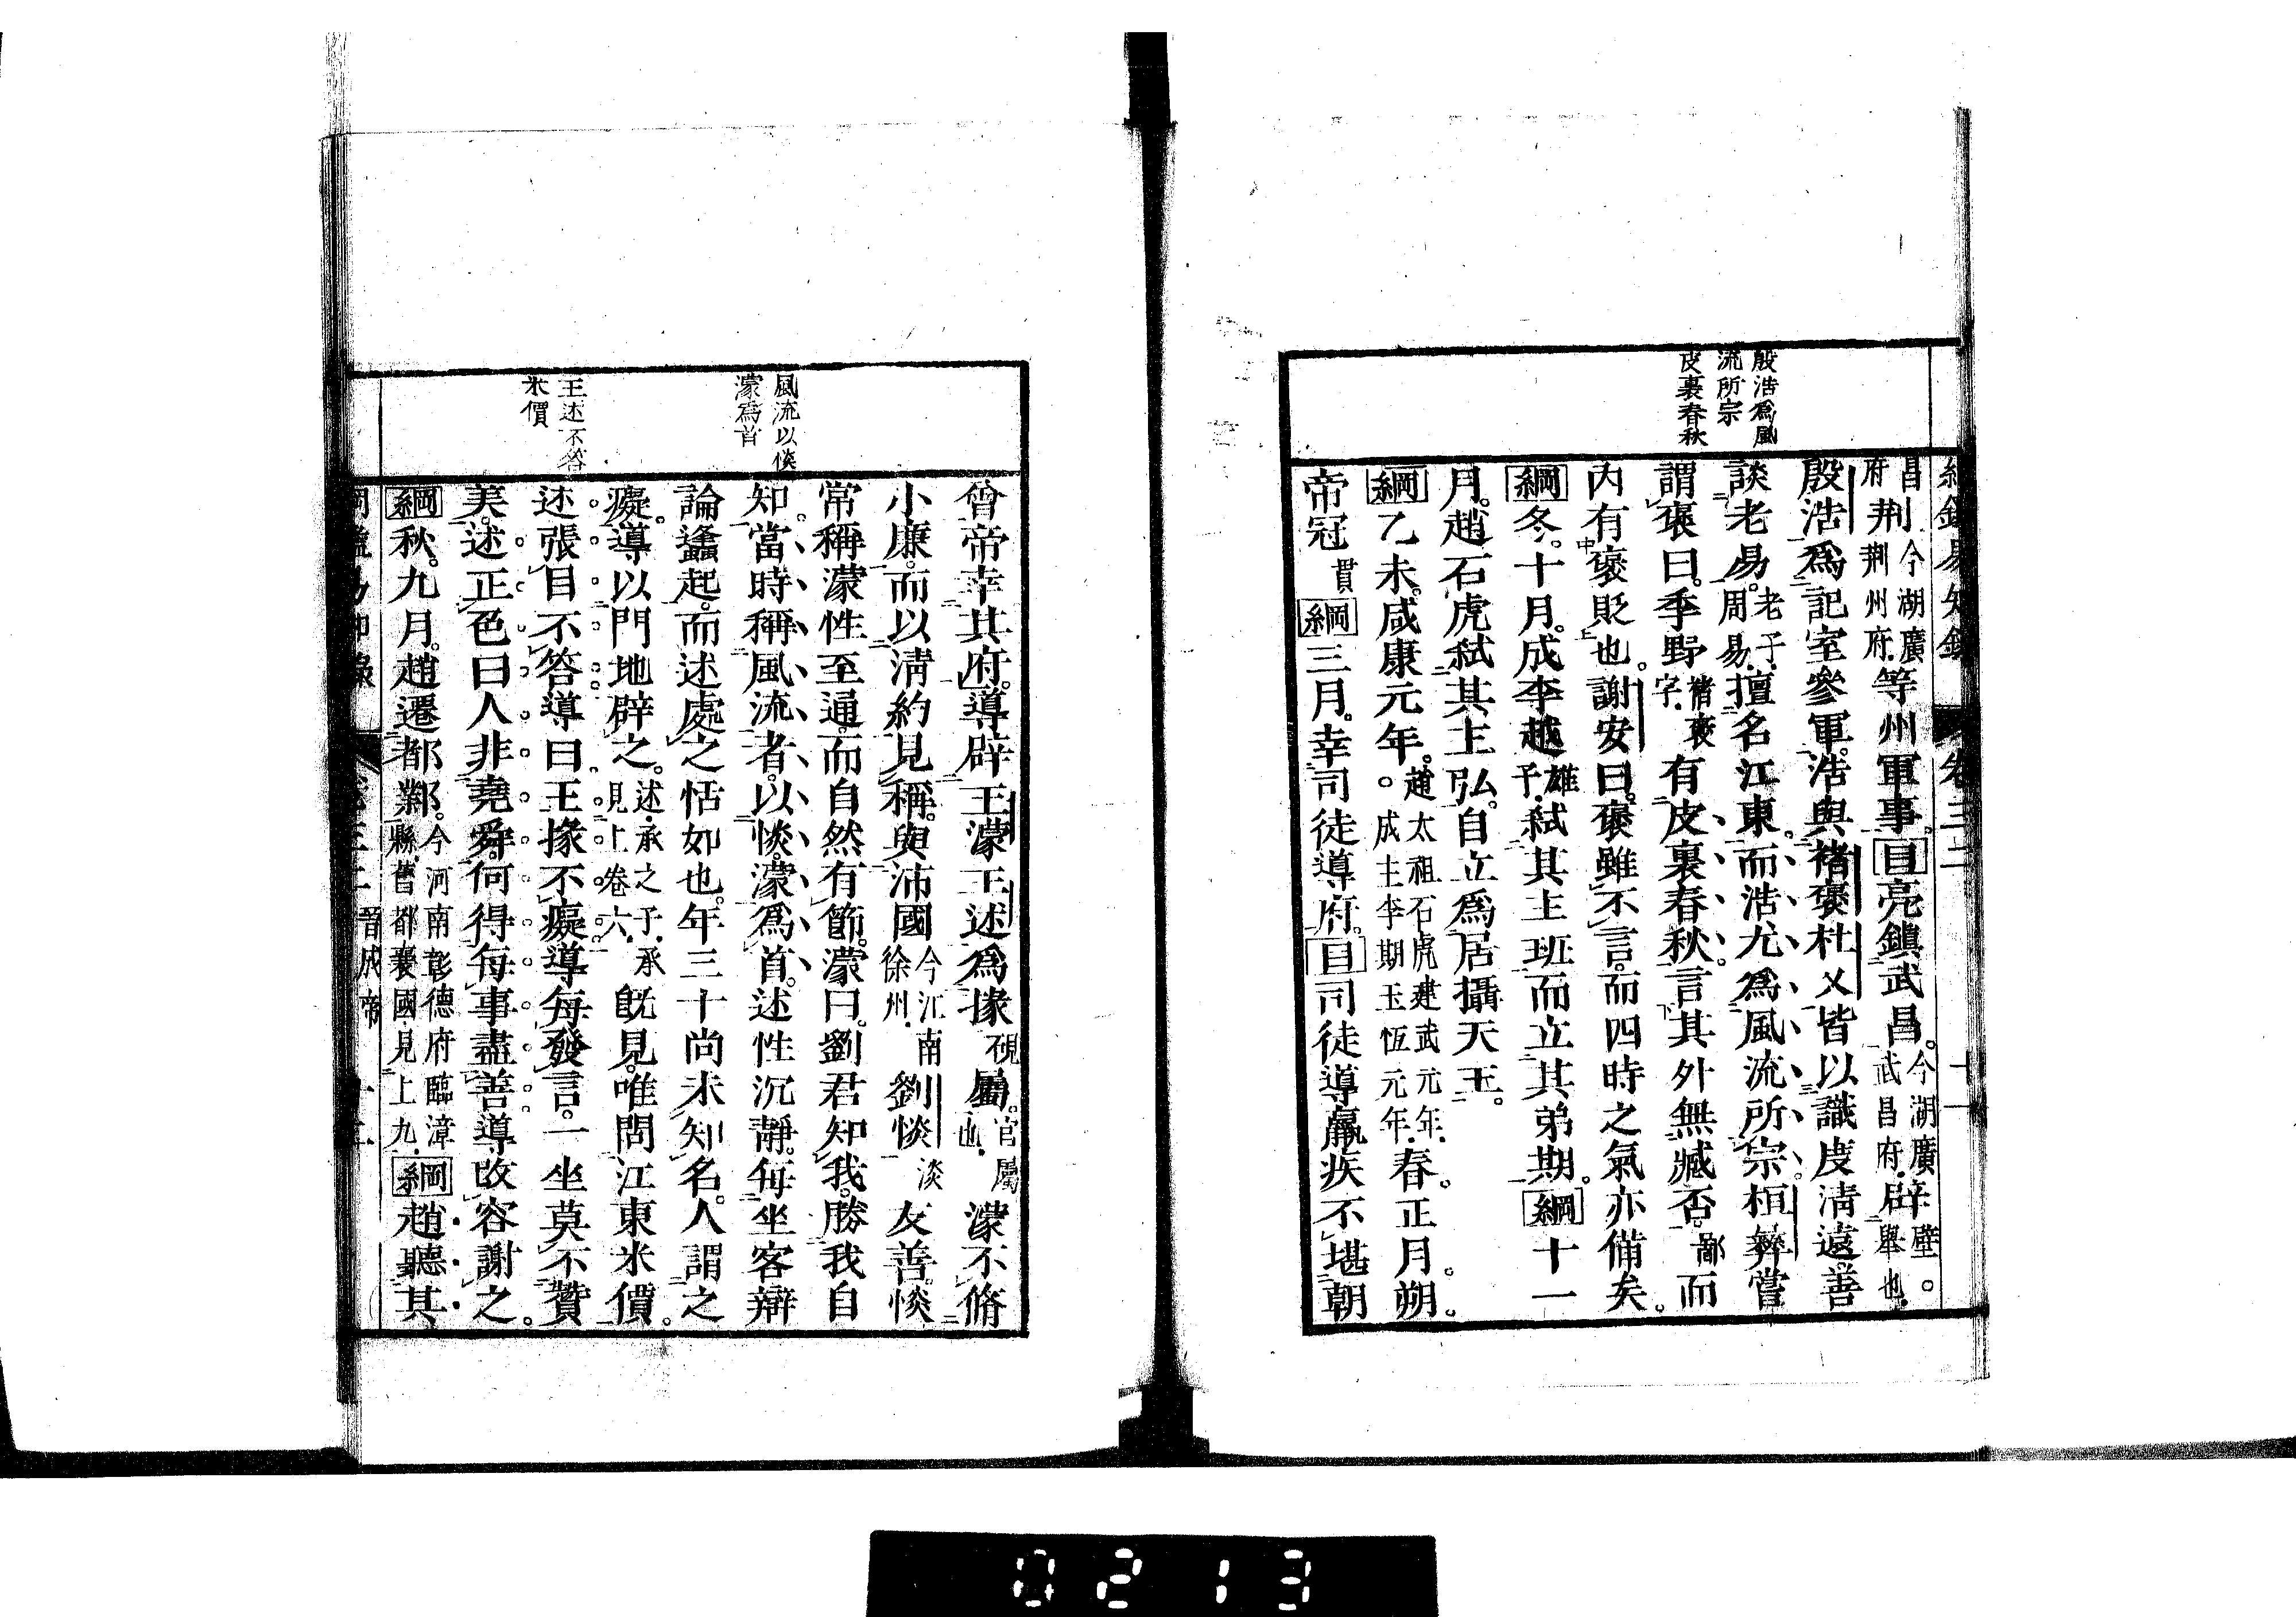 殷浩爲風
流所宗
皮裏春秋
昌荆今湖廣荆州府府等州軍事目亮鎭武昌今湖廣武昌府辟壁舉也
殷浩爲記室參軍浩與褚裒杜乂皆以識度淸遠善
談老易老子周易擅名江東而浩尤爲風流所宗桓彝嘗
謂裒曰季野褚裒字有皮裏春秋言其外無臧否鄙而
內有褒貶也謝安曰裒雖不言而四時之氣亦備矣
綱冬十月成李越雄子弑其主班而立其弟期綱十一
月趙石虎弑其主弘自立爲居攝天王
綱乙未咸康元年趙太祖石虎建武元年成主李期玉恆元年春正月朔
帝冠貫綱三月幸司徒導府目司徒導羸疾不堪朝
風流以惔
濛爲首
王述不答
米價
曾帝幸其府導辟王濛王述爲掾硯屬官屬也濛不脩
小廉而以淸約見稱與沛國今江南徐州劉惔淡友善惔
常稱濛性至通而自然有節濛曰劉君知我勝我自
知當時稱風流者以惔濛爲首述性沉靜每坐客辯
論蠭起而述處之恬如也年三十尚未知名人謂之
癡導以門地辟之述承之子承見上卷六既見唯問江東米價
述張目不答導曰王掾不癡導每發言一坐莫不贊
美述正色曰人非堯舜何得每事盡善導改容謝之
綱秋九月趙遷都鄴今河南彰德府臨漳縣舊都襄國見上九綱趙聽其
晉成帝
0213